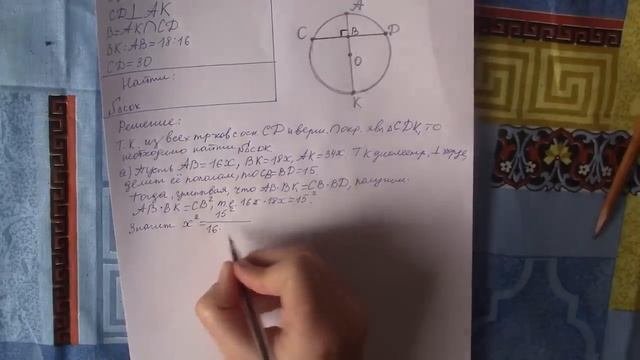 CD⊥AK
B=AK∩CD
BK:AB=18:16
CD=30
Найти:
Решение:
Т.К. из всех тр-ков с осн. CD и верш. Покр. явл. △CDK, то
необходимо найти
а) Пусть AB=16x, BK=18x, AK=34x. ТК диаметр, ⊥ хорде,
делит её пополам, то CB=BD=15
Тогда, учитывая, что AB·BK=CB·BD, получим:
AB·BK=CB², т.е. 16x·18x=15²
Значит x²=15²
16·
A
C
B
D
O
K